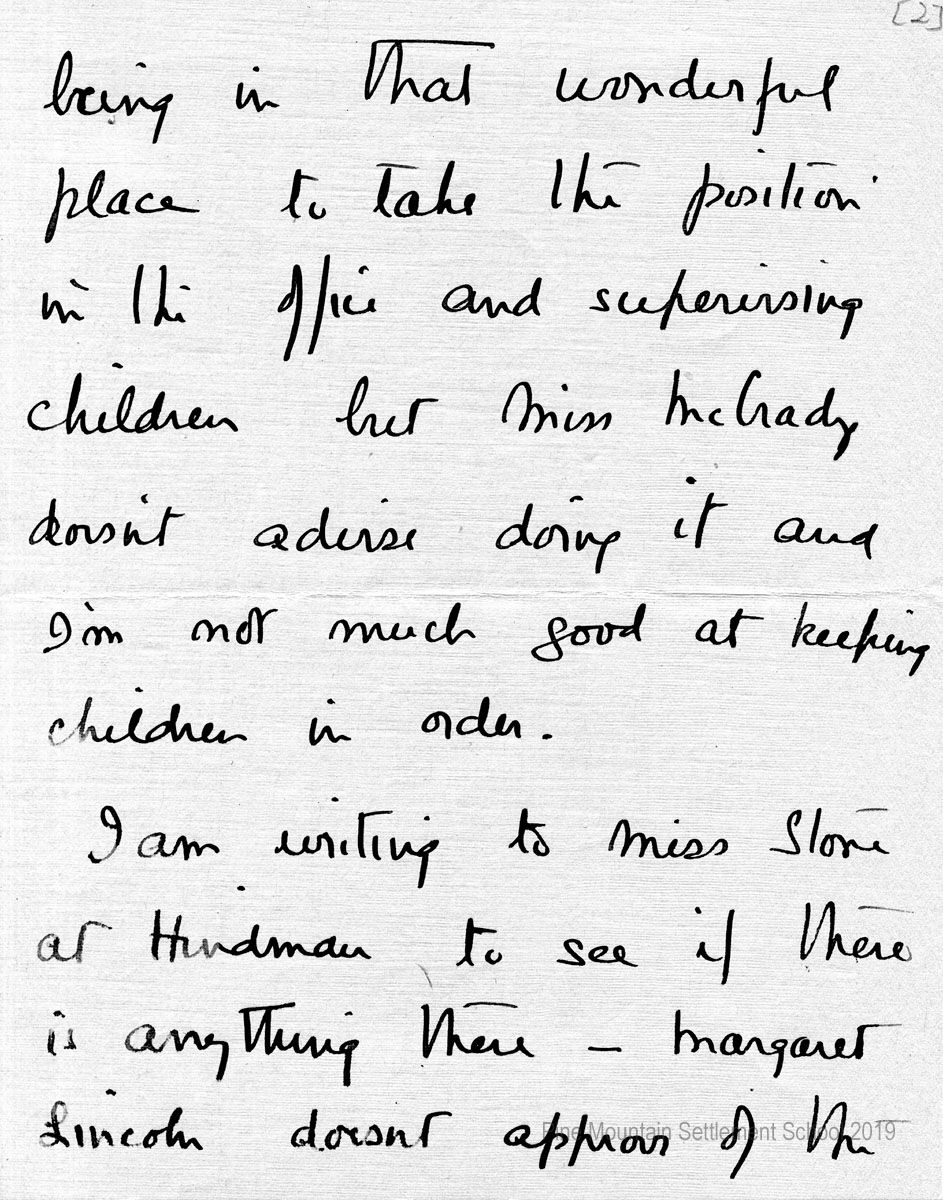 [2]
being in that wonderful
place to take the position
in the office and supervising
children but Miss McCrady
doesn't advise doing it and
I'm not much good at keeping
children in order.
I am writing to Miss Stone
at Hindman to see if there
is anything there – Margaret
Lincoln doesnt approve of the
Pine Mountain Settlement School 2019